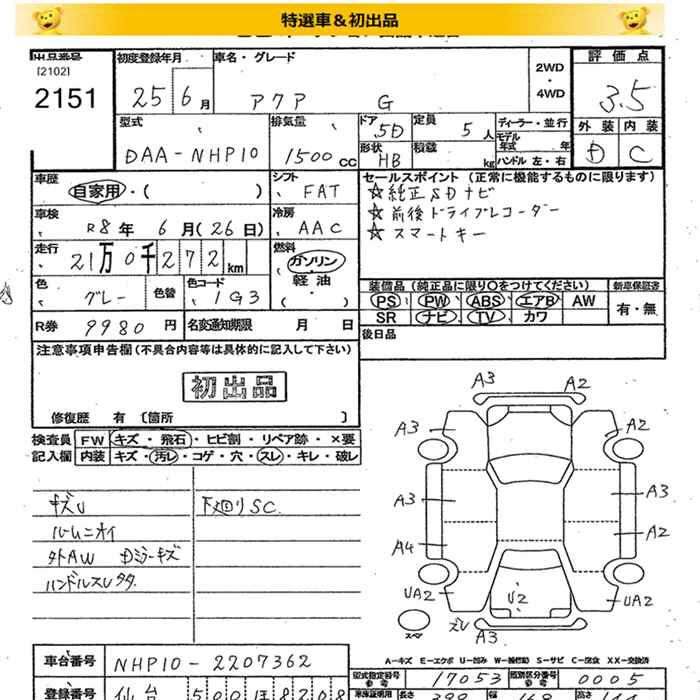 特選車＆初出品
出品番号
[2102]
2151
初度登録年月
25 6月
車名・グレード
アクア G
2WD
・
4WD
評価点
3.5
型式
DAA-NHP10
排気量
1500 CC
ドア
5D
定員
5 人
形状
HB
積載
kg
ディーラー・並行
モデル
年式 年
ハンドル 左・右
外装 内装
D C
車歴
自家用・( )
シフト
FAT
車検
R8年 6月(26日)
冷房
AAC
走行
21万0千272km
燃料
ガソリン
・
軽油
( )
色
グレー
色替
色コード
1G3
R券 9980円
名変通知期限 月 日
セールスポイント (正常に機能するものに限ります)
☆純正SDナビ
☆前後ドライブレコーダー
☆スマートキー
装備品 (純正品に限り○をつけてください)
新車保証書
PS PW ABS エアB AW
SR ナビ TV カワ
有・無
後日品
注意事項申告欄 (不具合内容等は具体的に記入して下さい)
初出品
修復歴 有 〔箇所 〕
検査員
記入欄
FW キズ・飛石・ヒビ割・リペア跡・×要
内装 キズ・汚レ・コゲ・穴・スレ・キレ・破レ
キズU
ルームニオイ
外AW Dミラーキズ
ハンドルスレ
下廻りSC
A3 A2
A3 A2
A3 A3
A4 A2
UA2 U2 UA2
A3
スペア
A-キズ E-エクボ U-凹み W-補修跡 S-サビ C-腐食 X-要交換 XX-交換済
車台番号 NHP10-2207362
登録番号 仙台 500 ほ 8208
型式指定番号
参考
17053
類別区分番号
参考
0005
車庫証明用
長さ
399
幅
高さ
144